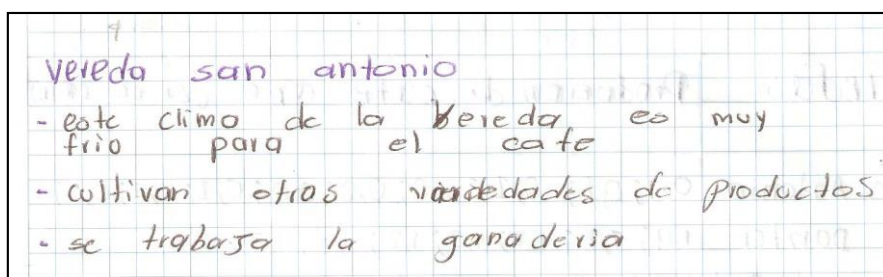 vereda san antonio
- este clima de la vereda es muy
frio para el cafe
- cultivan otras variedades de productos
- se trabaja la ganaderia